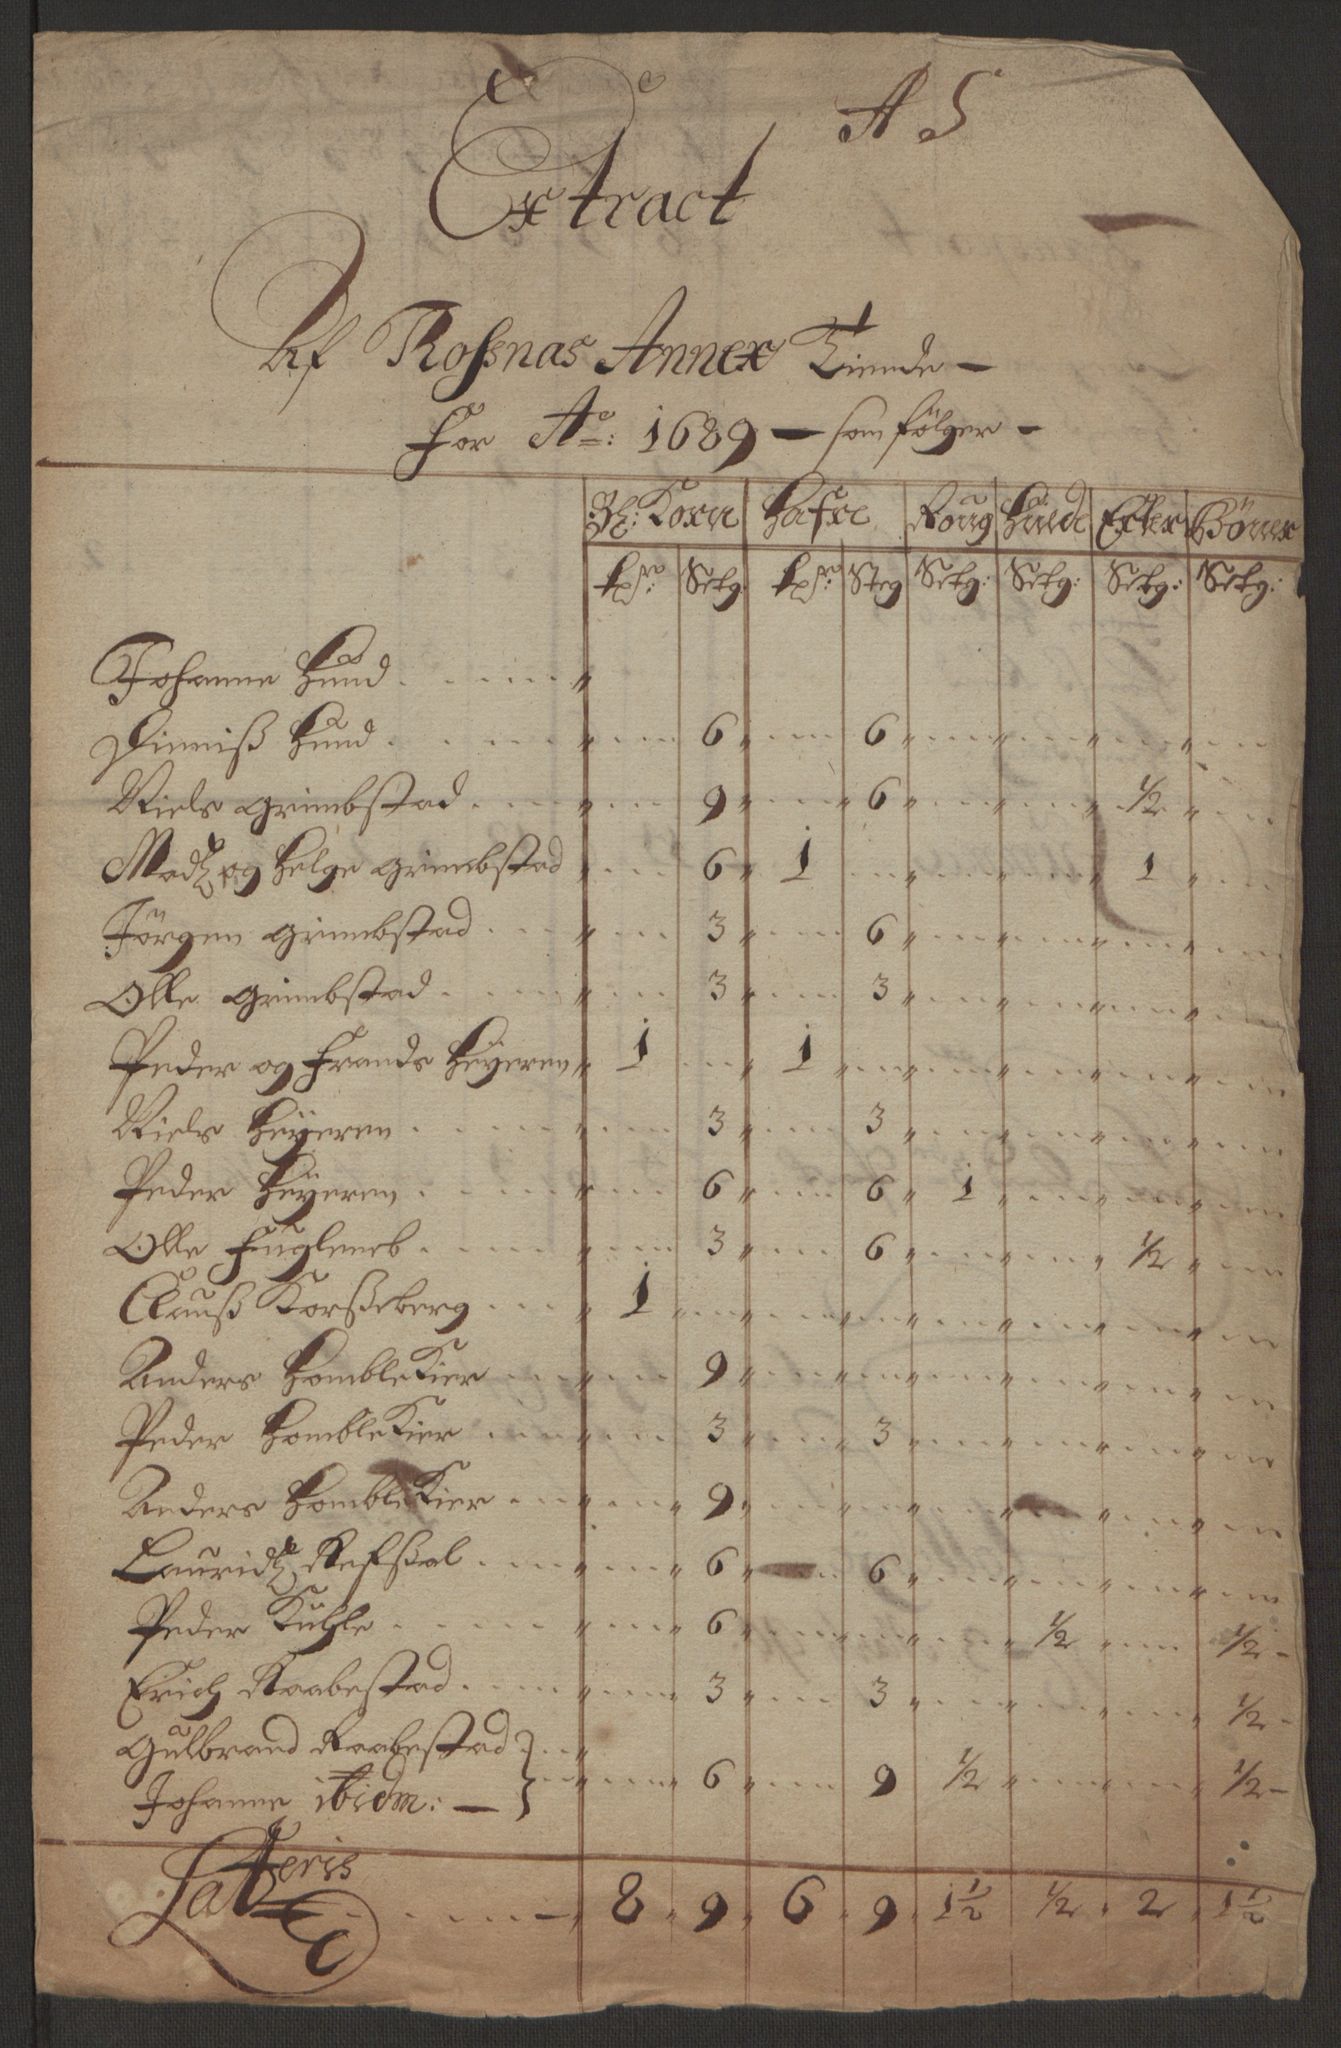 A 5
Extract
Af Rossnas Annex Tiende –
for Ao: 1689 – som fölger –
Bl: Korn Hafre Roug Huede Erter Böner
Setg: Steg Setg: Setg: Setg: Setg:
Johanne Hund
Dinniß Hund 6 6
Niels Grimbstad 9 6 1/2
Madtz og Helge Grimbstad 6 1 1
Jörgen Grimbstad 3 6
Olle Grimbstad 3 3
Peder og Frands Höyeren 1 1
Niels Höyeren 3 3
Peder Höyeren 6 6 1
Olle Fugleneb 3 6 1/2
Clauß Korßeberg 1
Anders HombleKier 9
Peder HombleKier 3 3
Anders HombleKier 9
Lauridtz Refßal 6 6
Peder Kuhle 6 1/2 1/2 –
Erich Raabestad 3 3 1/2 –
Gulbrand Raabestad }
Johanne ibidm: – } 6 9 1/2 1/2 –
Latteris 8 9 6 9 1 1/2 1/2 2 1 1/2